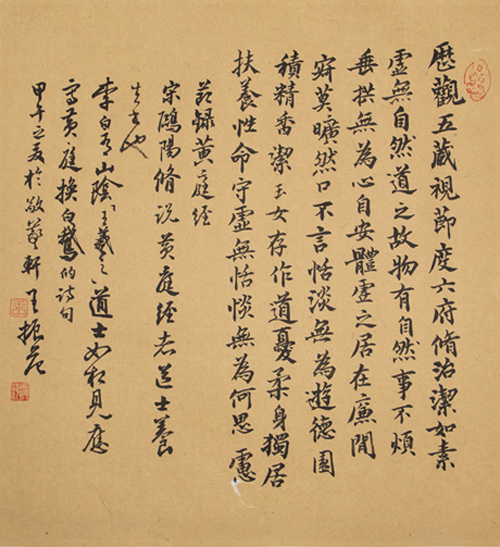 歷觀五藏視節度六府脩治潔如素
虛無自然道之故物有自然事不煩
垂拱無為心自安體虛之居在廉間
寂莫曠然口不言恬淡無為遊德園
積精香潔玉女存作道憂柔身獨居
扶養性命守虛無恬惔無為何思慮
節録黄庭经
宋鷗陽脩说黄庭经者道士養
生書也
李白有山陰王羲之道士如相見應
寫黄庭換白鵝的诗句
甲午之夏於敬藝軒王振